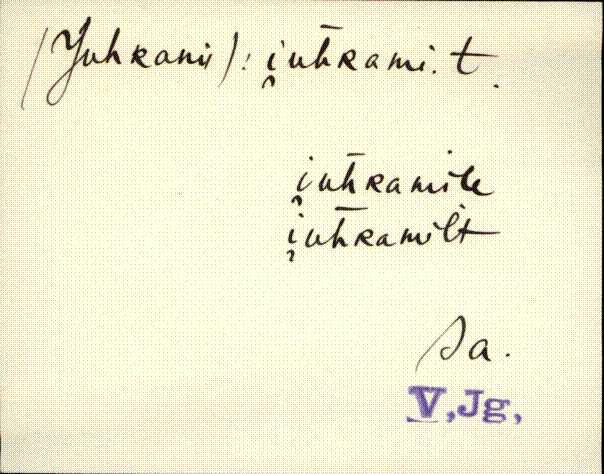 (Juhkami): i̯uh̄kami. t.
i̯uh̄kamile
i̯uh̄kamilt
Sa.
V, Jg,